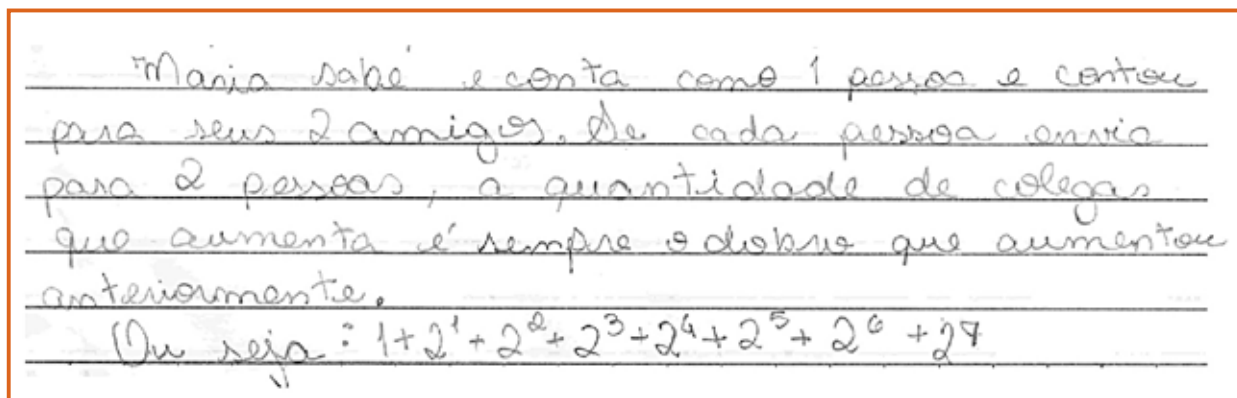 Maria sabe e conta como 1 pessoa e contou
para seus 2 amigos. Se cada pessoa envia
para 2 pessoas, a quantidade de colegas
que aumenta é sempre o dobro que aumentou
anteriormente.
Ou seja: 1+2¹+2²+2³+2⁴+2⁵+2⁶+2⁷